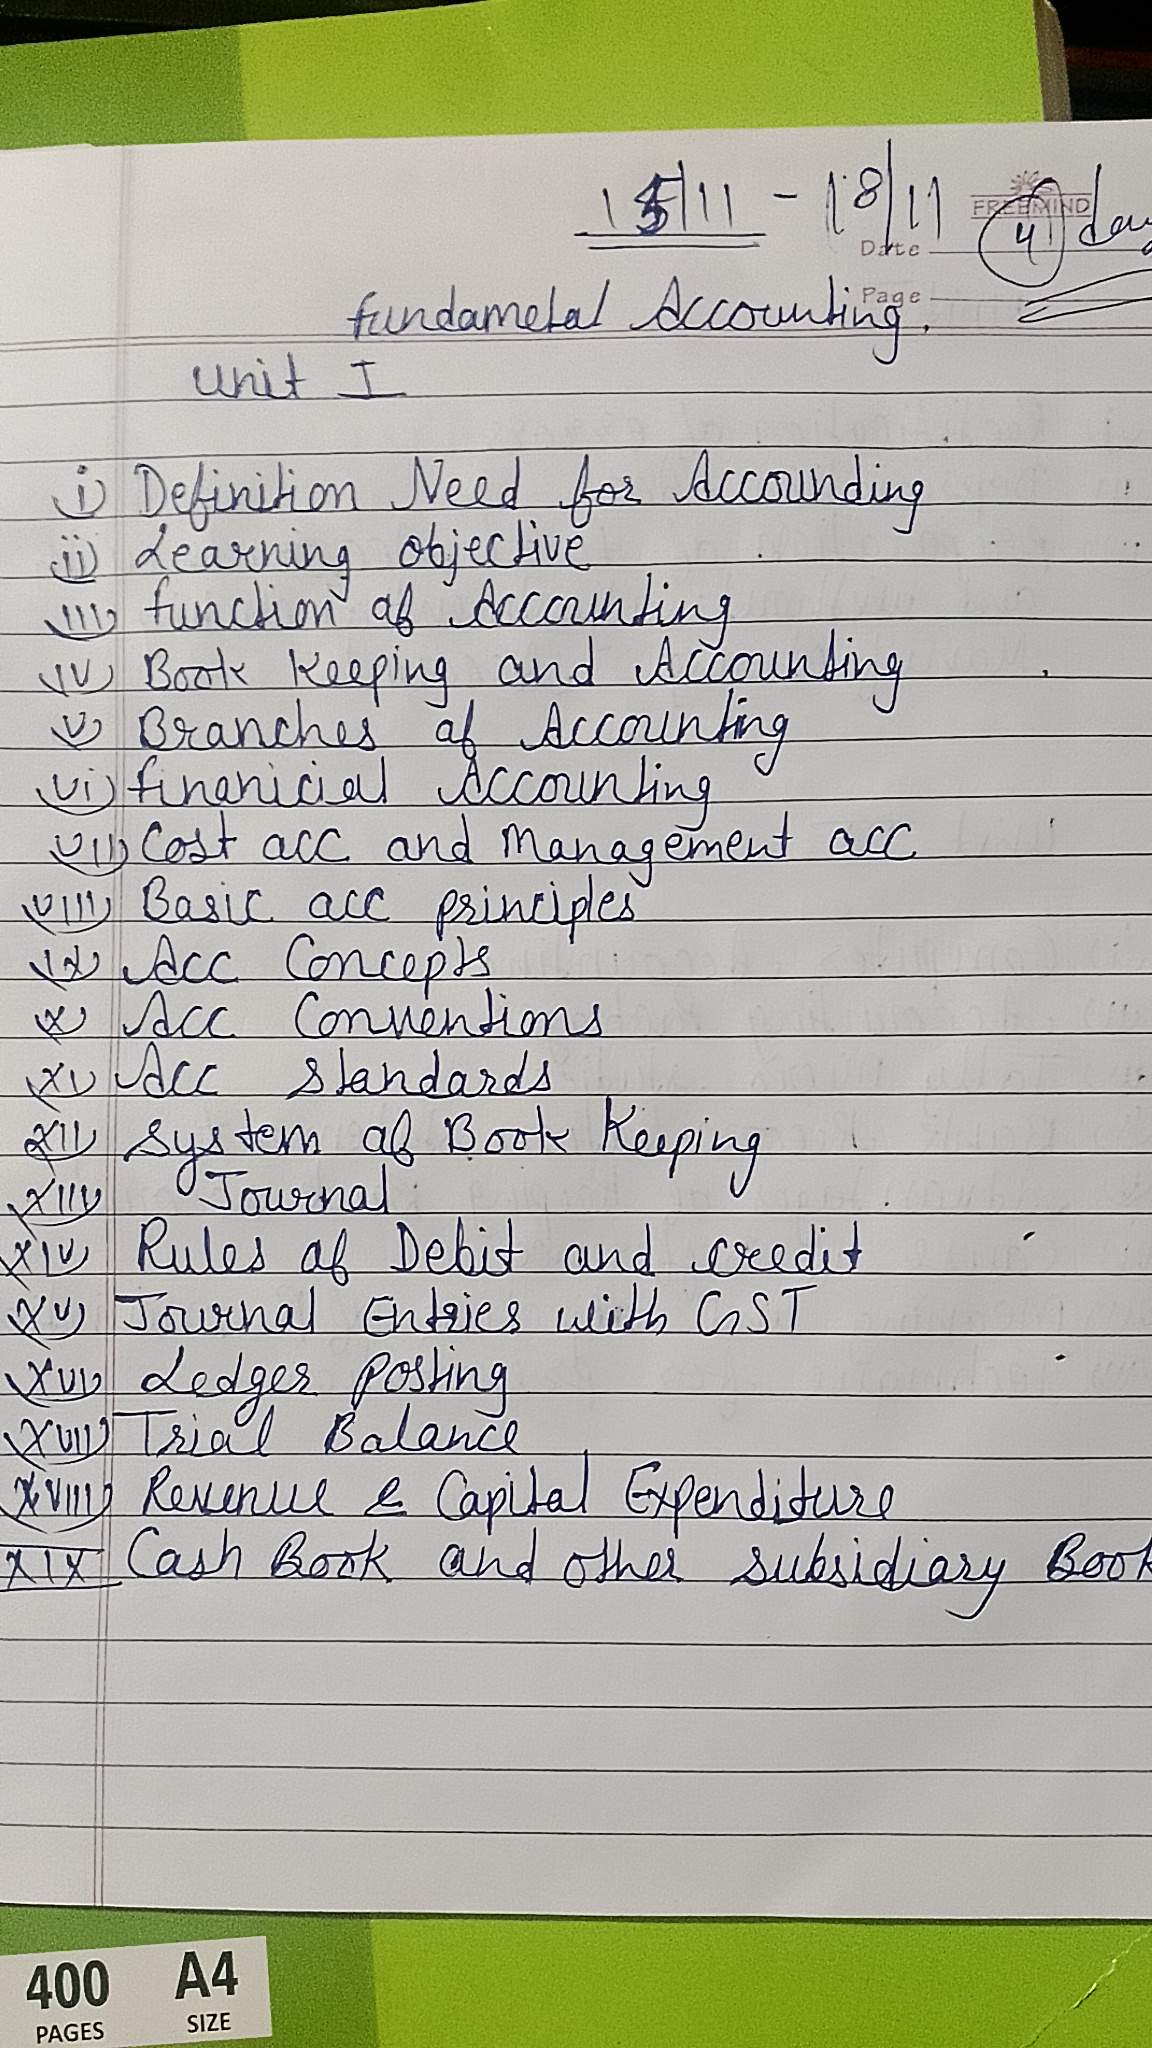 15/11 - 18/11 4 day
FREEMIND
Date
Page
fundametal Accounting.
Unit I
i) Definition Need for Accounding
ii) Learning objective
iii) function of Accounting
iv) Book Keeping and Accounting
v) Branches of Accounting
vi) finanicial Accounting
vii) Cost acc and Management acc
viii) Basic acc principles
ix) Acc Concepts
x) Acc Conventions
xi) Acc standards
xii) System of Book Keeping
xiii) Journal
xiv) Rules of Debit and credit
xv) Journal Entries with GST
xvi) Ledger Posting
xvii) Trial Balance
xviii) Revenue & Capital Expenditure
xix Cash Book and other subsidiary Book
400 A4
PAGES SIZE